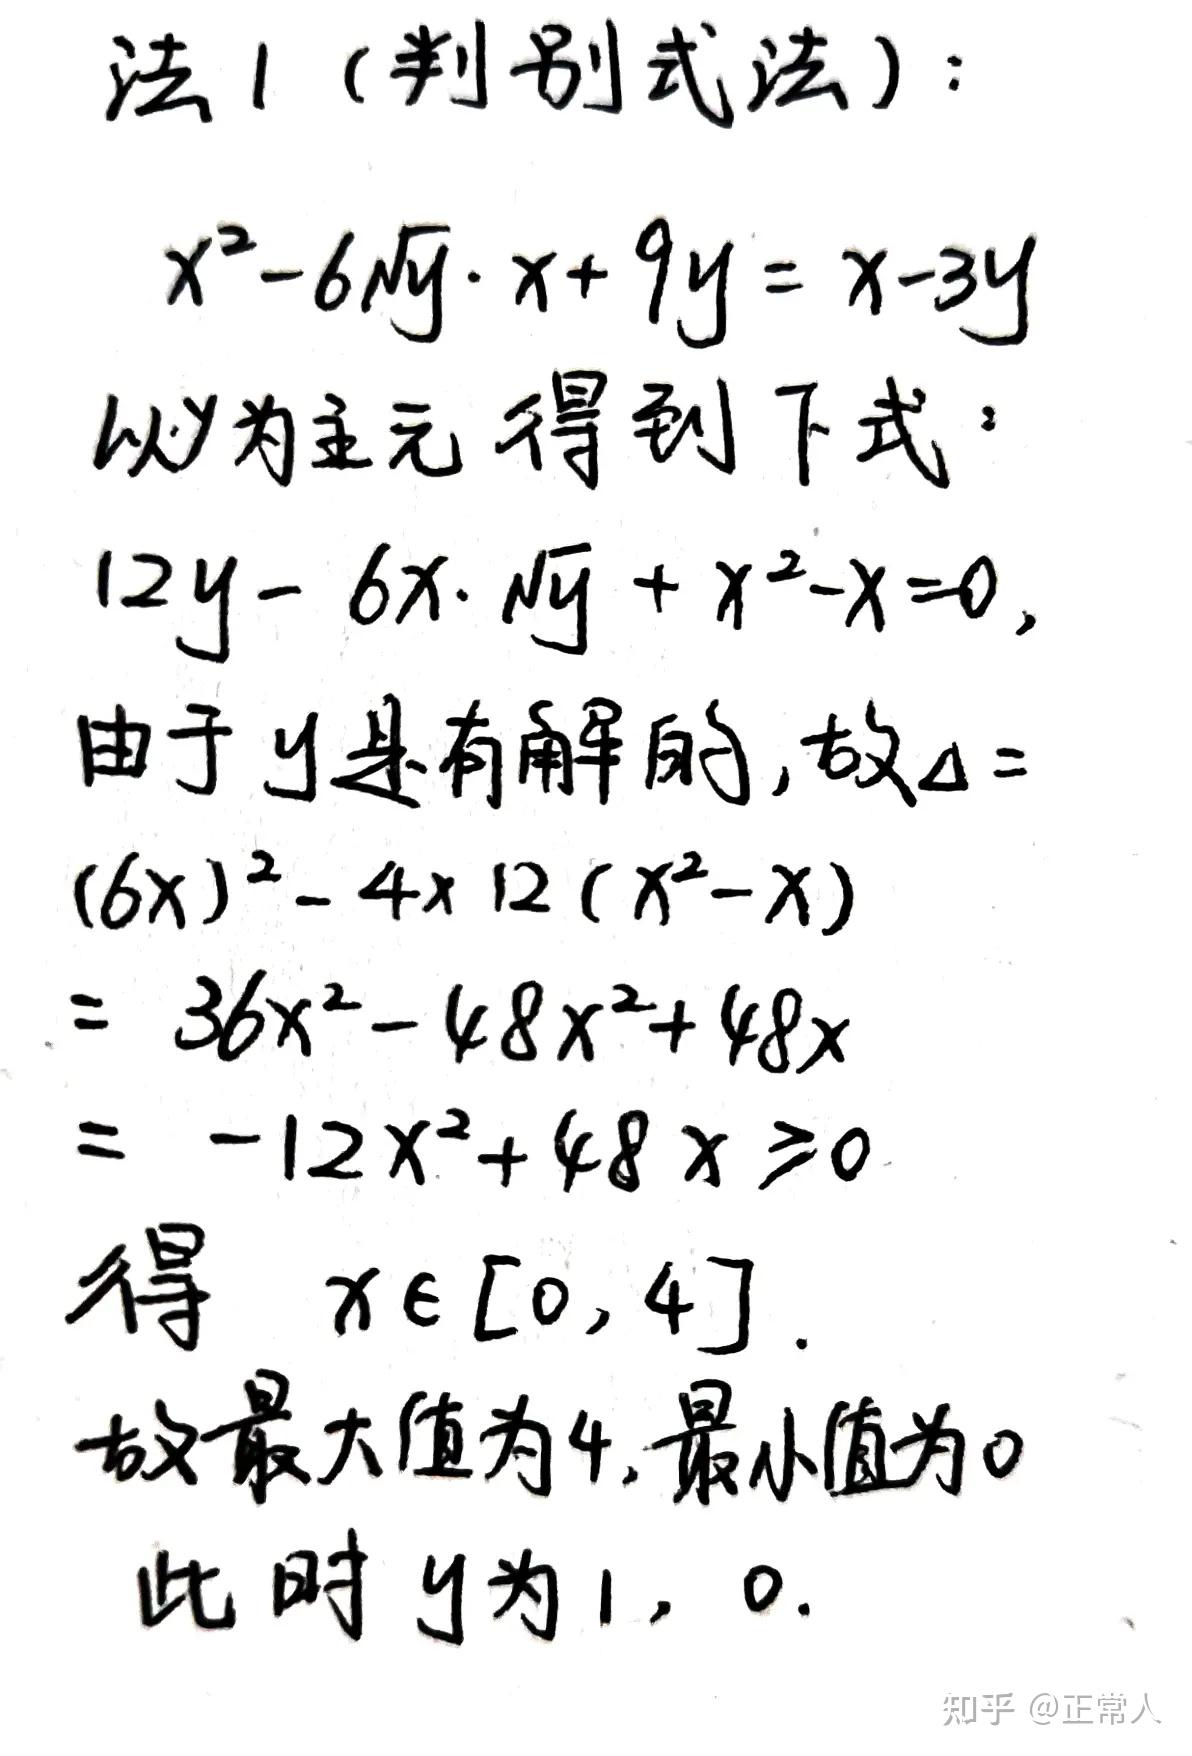 法1（判别式法）:
x²-6√y·x+9y=x-3y
以y为主元得到下式:
12y-6x·√y+x²-x=0,
由于y是有解的,故△=
(6x)²-4×12(x²-x)
=36x²-48x²+48x
=-12x²+48x≥0
得 x∈[0,4].
故最大值为4,最小值为0
此时y为1,0.
知乎 @正常人